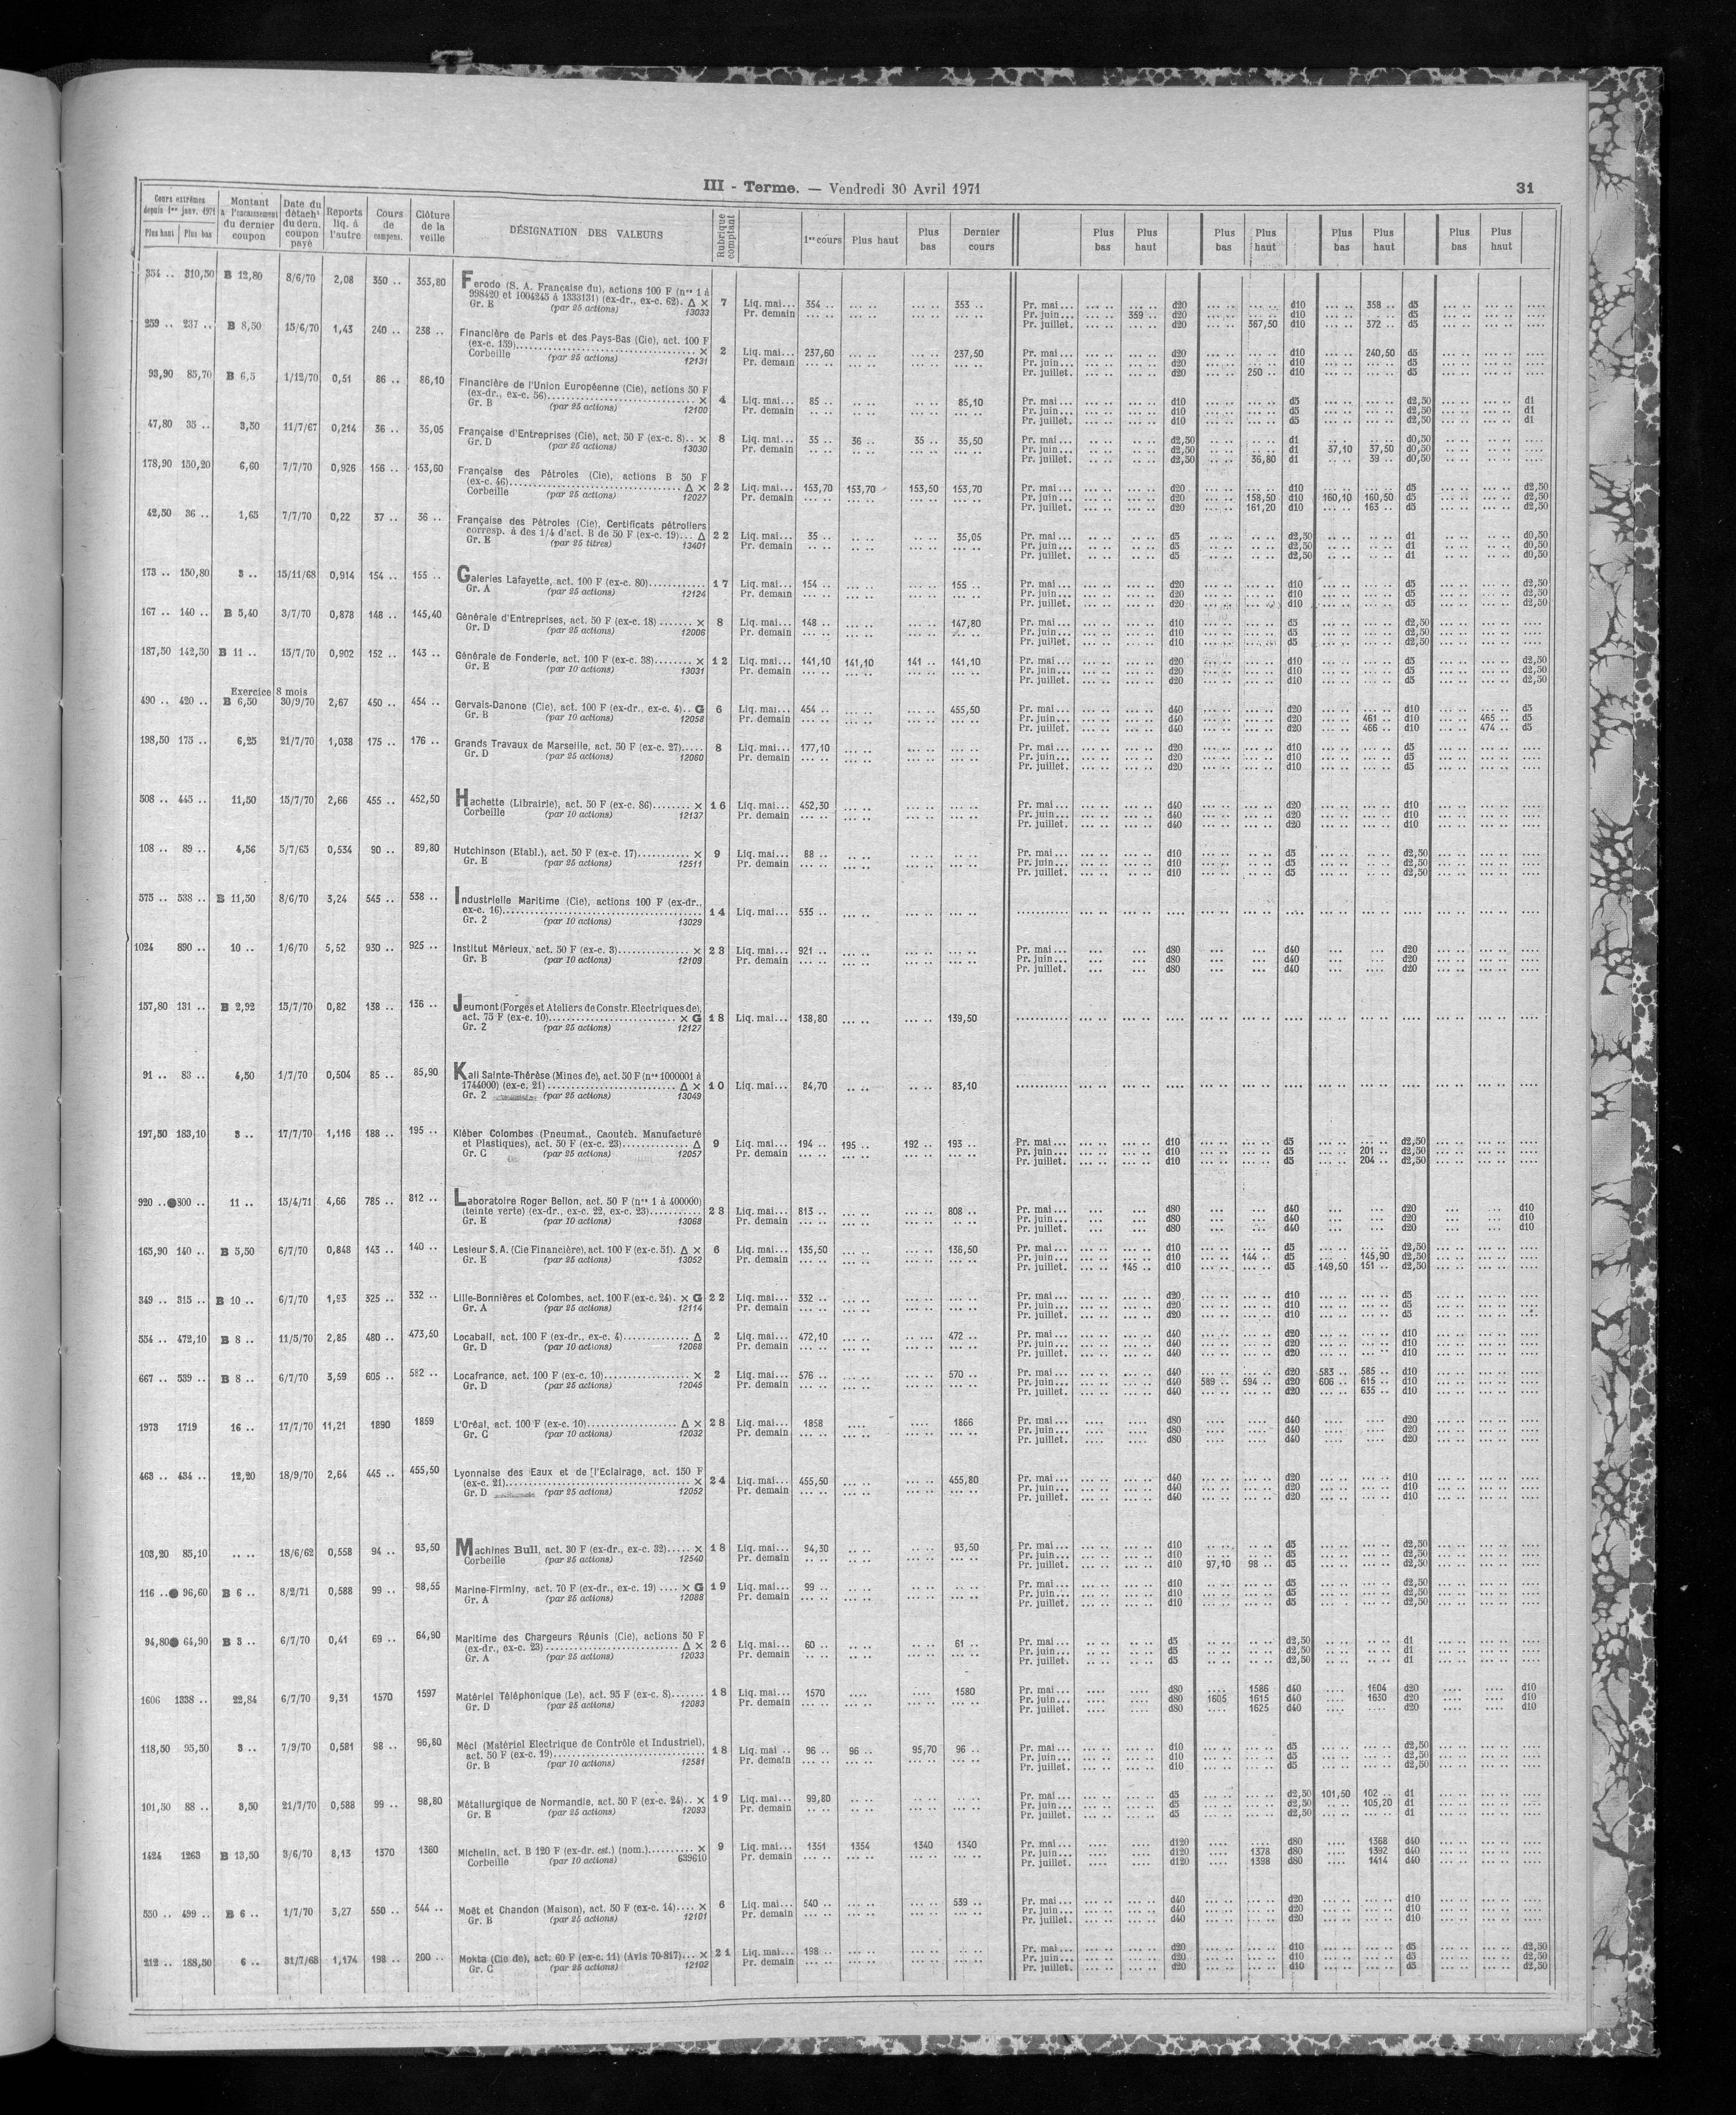 III - Terme. — Vendredi 30 Avril 1971 31
Cours extrêmes depuis 1er janv. 1971 Plus haut Plus bas | Montant à l'encaissement du dernier coupon | Date du détacht du dern. coupon payé | Reports liq. à l'autre | Cours de compens. | Clôture de la veille | DÉSIGNATION DES VALEURS | Rubrique comptant | 1er cours | Plus haut | Plus bas | Dernier cours | Plus bas | Plus haut | Plus bas | Plus haut | Plus bas | Plus haut | Plus bas | Plus haut
354 .. 310,50 B 12,80 8/6/70 2,08 350 .. 353,80 Ferodo (S. A. Française du), actions 100 F (nos 1 à
998420 et 1004245 à 1333131) (ex-dr., ex-c. 62). Δ × 7 Liq. mai... 354 .. 353 .. Pr. mai ... d20 d10 358 .. d5
Gr. E (par 25 actions) 13033 Pr. demain Pr. juin... 359 .. d20 d10 d5
Pr. juillet. d20 367,50 d10 372 .. d5
259 .. 237 .. B 8,50 15/6/70 1,43 240 .. 238 .. Financière de Paris et des Pays-Bas (Cie), act. 100 F
(ex-c. 139) × 2 Liq. mai... 237,60 237,50 Pr. mai ... d20 d10 240,50 d5
Corbeille (par 25 actions) 12131 Pr. demain Pr. juin... d20 d10 d5
Pr. juillet. d20 250 .. d10 d5
93,90 85,70 B 6,5 1/12/70 0,51 86 .. 86,10 Financière de l'Union Européenne (Cie), actions 50 F
(ex-dr., ex-c. 56) × 4 Liq. mai... 85 .. 85,10 Pr. mai ... d10 d5 d2,50 d1
Gr. B (par 25 actions) 12100 Pr. demain Pr. juin... d10 d5 d2,50 d1
Pr. juillet. d10 d5 d2,50 d1
47,80 35 .. 3,50 11/7/67 0,214 36 .. 35,05 Française d'Entreprises (Cie), act. 50 F (ex-c. 8).. × 8 Liq. mai... 35 .. 36 .. 35 .. 35,50 Pr. mai ... d2,50 d1 d0,50
Gr. D (par 25 actions) 13030 Pr. demain Pr. juin... d2,50 d1 37,10 37,50 d0,50
Pr. juillet. d2,50 36,80 d1 39 .. d0,50
178,90 150,20 6,60 7/7/70 0,926 156 .. 153,60 Française des Pétroles (Cie), actions B 50 F
(ex-c. 46) Δ × 22 Liq. mai... 153,70 153,70 153,50 153,70 Pr. mai ... d20 d10 d5 d2,50
Corbeille (par 25 actions) 12027 Pr. demain Pr. juin... d20 158,50 d10 160,10 160,50 d5 d2,50
Pr. juillet. d20 161,20 d10 163 .. d5 d2,50
42,50 36 .. 1,65 7/7/70 0,22 37 .. 36 .. Française des Pétroles (Cie), Certificats pétroliers
corresp. à des 1/4 d'act. B de 50 F (ex-c. 19)... Δ 22 Liq. mai... 35 .. 35,05 Pr. mai ... d5 d2,50 d1 d0,50
Gr. E (par 25 titres) 13401 Pr. demain Pr. juin... d5 d2,50 d1 d0,50
Pr. juillet. d5 d2,50 d1 d0,50
173 .. 150,80 3 .. 15/11/68 0,914 154 .. 155 .. Galeries Lafayette, act. 100 F (ex-c. 80) 17 Liq. mai... 154 .. 155 .. Pr. mai ... d20 d10 d5 d2,50
Gr. A (par 25 actions) 12124 Pr. demain Pr. juin... d20 d10 d5 d2,50
Pr. juillet. d20 d10 d5 d2,50
167 .. 140 .. B 5,40 3/7/70 0,878 148 .. 145,40 Générale d'Entreprises, act. 50 F (ex-c. 18) × 8 Liq. mai... 148 .. 147,80 Pr. mai ... d10 d5 d2,50
Gr. D (par 25 actions) 12006 Pr. demain Pr. juin... d10 d5 d2,50
Pr. juillet. d10 d5 d2,50
187,50 142,50 B 11 .. 15/7/70 0,902 152 .. 143 .. Générale de Fonderie, act. 100 F (ex-c. 38) × 12 Liq. mai... 141,10 141,10 141 .. 141,10 Pr. mai ... d20 d10 d5 d2,50
Gr. E (par 10 actions) 13031 Pr. demain Pr. juin... d20 d10 d5 d2,50
Pr. juillet. d20 d10 d5 d2,50
Exercice 8 mois
490 .. 420 .. B 6,50 30/9/70 2,67 450 .. 454 .. Gervais-Danone (Cie), act. 100 F (ex-dr., ex-c. 4).. G 6 Liq. mai... 454 .. 455,50 Pr. mai ... d40 d20 d10 d5
Gr. B (par 10 actions) 12058 Pr. demain Pr. juin... d40 d20 461 .. d10 465 .. d5
Pr. juillet. d40 d20 466 .. d10 474 .. d5
198,50 175 .. 6,25 21/7/70 1,038 175 .. 176 .. Grands Travaux de Marseille, act. 50 F (ex-c. 27) 8 Liq. mai... 177,10 Pr. mai ... d20 d10 d5
Gr. D (par 25 actions) 12060 Pr. demain Pr. juin... d20 d10 d5
Pr. juillet. d20 d10 d5
508 .. 445 .. 11,50 15/7/70 2,66 455 .. 452,50 Hachette (Librairie), act. 50 F (ex-c. 86) × 16 Liq. mai... 452,30 Pr. mai ... d40 d20 d10
Corbeille (par 10 actions) 12137 Pr. demain Pr. juin... d40 d20 d10
Pr. juillet. d40 d20 d10
108 .. 89 .. 4,56 5/7/65 0,534 90 .. 89,80 Hutchinson (Etabl.), act. 50 F (ex-c. 17) × 9 Liq. mai... 88 .. Pr. mai ... d10 d5 d2,50
Gr. E (par 25 actions) 12511 Pr. demain Pr. juin... d10 d5 d2,50
Pr. juillet. d10 d5 d2,50
575 .. 538 .. B 11,50 8/6/70 3,24 545 .. 538 .. Industrielle Maritime (Cie), actions 100 F (ex-dr.,
ex-c. 16) 14 Liq. mai... 535 ..
Gr. 2 (par 10 actions) 13029
1024 890 .. 10 .. 1/6/70 5,52 930 .. 925 .. Institut Mérieux, act. 50 F (ex-c. 3) × 23 Liq. mai... 921 .. Pr. mai ... d80 d40 d20
Gr. B (par 10 actions) 12109 Pr. demain Pr. juin... d80 d40 d20
Pr. juillet. d80 d40 d20
157,80 131 .. B 2,92 15/7/70 0,82 138 .. 136 .. Jeumont (Forges et Ateliers de Constr. Electriques de),
act. 75 F (ex-c. 10) × G 18 Liq. mai... 138,80 139,50
Gr. 2 (par 25 actions) 12127
91 .. 83 .. 4,50 1/7/70 0,504 85 .. 85,90 Kali Sainte-Thérèse (Mines de), act. 50 F (nos 1000001 à
1744000) (ex-c. 21) Δ × 10 Liq. mai... 84,70 83,10
Gr. 2 (par 25 actions) 13049
197,50 183,10 3 .. 17/7/70 1,116 188 .. 195 .. Kléber Colombes (Pneumat., Caoutch. Manufacturé
et Plastiques), act. 50 F (ex-c. 23) Δ 9 Liq. mai... 194 .. 195 .. 192 .. 193 .. Pr. mai ... d10 d5 d2,50
Gr. C (par 25 actions) 12057 Pr. demain Pr. juin... d10 d5 201 .. d2,50
Pr. juillet. d10 d5 204 .. d2,50
920 .. ● 800 .. 11 .. 15/4/71 4,66 785 .. 812 .. Laboratoire Roger Bellon, act. 50 F (nos 1 à 400000)
(teinte verte) (ex-dr., ex-c. 22, ex-c. 23) 23 Liq. mai... 813 .. 808 .. Pr. mai ... d80 d40 d20 d10
Gr. E (par 10 actions) 13068 Pr. demain Pr. juin... d80 d40 d20 d10
Pr. juillet. d80 d40 d20 d10
165,90 140 .. B 5,50 6/7/70 0,848 143 .. 140 .. Lesieur S.A. (Cie Financière), act. 100 F (ex-c. 51). Δ × 6 Liq. mai... 135,50 136,50 Pr. mai ... d10 d5 d2,50
Gr. E (par 25 actions) 13052 Pr. demain Pr. juin... d10 144 .. d5 145,90 d2,50
Pr. juillet. 145 .. d10 d5 149,50 151 .. d2,50
349 .. 315 .. B 10 .. 6/7/70 1,93 325 .. 332 .. Lille-Bonnières et Colombes, act. 100 F (ex-c. 24). × G 22 Liq. mai... 332 .. Pr. mai ... d20 d10 d5
Gr. A (par 25 actions) 12114 Pr. demain Pr. juin... d20 d10 d5
Pr. juillet. d20 d10 d5
554 .. 472,10 B 8 .. 11/5/70 2,85 480 .. 473,50 Locabail, act. 100 F (ex-dr., ex-c. 4) Δ 2 Liq. mai... 472,10 472 .. Pr. mai ... d40 d20 d10
Gr. D (par 10 actions) 12068 Pr. demain Pr. juin... d40 d20 d10
Pr. juillet. d40 d20 d10
667 .. 539 .. B 8 .. 6/7/70 3,59 605 .. 582 .. Locafrance, act. 100 F (ex-c. 10) × 2 Liq. mai... 576 .. 570 .. Pr. mai ... d40 d20 583 .. 585 .. d10
Gr. D (par 25 actions) 12045 Pr. demain Pr. juin... d40 589 .. 594 .. d20 606 .. 615 .. d10
Pr. juillet. d40 d20 635 .. d10
1973 1719 16 .. 17/7/70 11,21 1890 1859 L'Oréal, act. 100 F (ex-c. 10) Δ × 28 Liq. mai... 1858 1866 Pr. mai ... d80 d40 d20
Gr. C (par 10 actions) 12032 Pr. demain Pr. juin... d80 d40 d20
Pr. juillet. d80 d40 d20
463 .. 434 .. 12,20 18/9/70 2,64 445 .. 455,50 Lyonnaise des Eaux et de l'Eclairage, act. 150 F
(ex-c. 21) × 24 Liq. mai... 455,50 455,80 Pr. mai ... d40 d20 d10
Gr. D (par 25 actions) 12052 Pr. demain Pr. juin... d40 d20 d10
Pr. juillet. d40 d20 d10
103,20 85,10 .. .. 18/6/62 0,558 94 .. 93,50 Machines Bull, act. 30 F (ex-dr., ex-c. 32) × 18 Liq. mai... 94,30 93,50 Pr. mai ... d10 d5 d2,50
Corbeille (par 25 actions) 12540 Pr. demain Pr. juin... d10 d5 d2,50
Pr. juillet. d10 97,10 98 .. d5 d2,50
116 .. ● 96,60 B 6 .. 8/2/71 0,588 99 .. 98,55 Marine-Firminy, act. 70 F (ex-dr., ex-c. 19) .... × G 19 Liq. mai... 99 .. Pr. mai ... d10 d5 d2,50
Gr. A (par 25 actions) 12088 Pr. demain Pr. juin... d10 d5 d2,50
Pr. juillet. d10 d5 d2,50
94,80 ● 64,90 B 3 .. 6/7/70 0,41 69 .. 64,90 Maritime des Chargeurs Réunis (Cie), actions 50 F
(ex-dr., ex-c. 23) Δ × 26 Liq. mai... 60 .. 61 .. Pr. mai ... d5 d2,50 d1
Gr. A (par 25 actions) 12033 Pr. demain Pr. juin... d5 d2,50 d1
Pr. juillet. d5 d2,50 d1
1606 1338 .. 22,84 6/7/70 9,31 1570 1597 Matériel Téléphonique (Le), act. 95 F (ex-c. 8) 18 Liq. mai... 1570 1580 Pr. mai ... d80 1586 d40 1604 d20 d10
Gr. D (par 25 actions) 12083 Pr. demain Pr. juin... d80 1605 1615 d40 1630 d20 d10
Pr. juillet. d80 1625 d40 d20 d10
118,50 95,50 3 .. 7/9/70 0,581 98 .. 96,80 Méci (Matériel Electrique de Contrôle et Industriel),
act. 50 F (ex-c. 19) 18 Liq. mai .. 96 .. 96 .. 95,70 96 .. Pr. mai ... d10 d5 d2,50
Gr. B (par 10 actions) 12581 Pr. demain Pr. juin... d10 d5 d2,50
Pr. juillet. d10 d5 d2,50
101,50 88 .. 3,50 21/7/70 0,588 99 .. 98,80 Métallurgique de Normandie, act. 50 F (ex-c. 24).. × 19 Liq. mai... 99,80 Pr. mai ... d5 d2,50 101,50 102 .. d1
Gr. E (par 25 actions) 12093 Pr. demain Pr. juin... d5 d2,50 105,20 d1
Pr. juillet. d5 d2,50 d1
1424 1263 B 13,50 3/6/70 8,13 1370 1360 Michelin, act. B 120 F (ex-dr. est.) (nom.) × 9 Liq. mai... 1351 1354 1340 1340 Pr. mai ... d120 d80 1368 d40
Corbeille (par 10 actions) 639610 Pr. demain Pr. juin... d120 1378 d80 1392 d40
Pr. juillet. d120 1398 d80 1414 d40
550 .. 499 .. B 6 .. 1/7/70 3,27 550 .. 544 .. Moët et Chandon (Maison), act. 50 F (ex-c. 14).... × 6 Liq. mai... 540 .. 539 .. Pr. mai ... d40 d20 d10
Gr. B (par 25 actions) 12101 Pr. demain Pr. juin... d40 d20 d10
Pr. juillet. d40 d20 d10
212 .. 188,50 6 .. 31/7/68 1,174 198 .. 200 .. Mokta (Cie de), act. 60 F (ex-c. 11) (Avis 70-817)... × 21 Liq. mai... 198 .. Pr. mai ... d20 d10 d5 d2,50
Gr. C (par 25 actions) 12102 Pr. demain Pr. juin... d20 d10 d5 d2,50
Pr. juillet. d20 d10 d5 d2,50